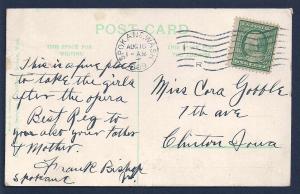 POST CARD
THIS SPACE FOR WRITING
SPOKANE, WASH.
AUG 16
1-AM
R
This is a fine place
to take the girls
after the opera
Best Reg to
your also your Father
& Mother.
Frank Bishop
Spokane
Miss Cora Gobble
7th ave
Clinton Iowa